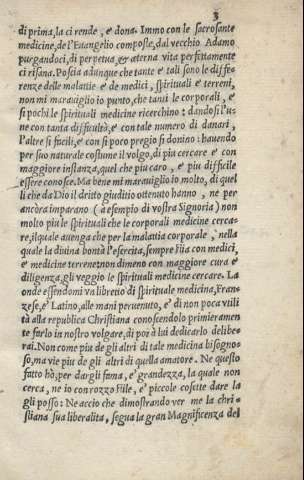 3
di prima, la ci rende, e' dona. Immo con le sacrosante
medicine, de l'Euangelio composte, dal vecchio Adamo
purgandoci, di perpetua, & æterna vita perfettamente
ci risana. Poscia adunque che tante e' tali sono le diffe-
renze delle malattie e' de medici, spirituali e' terreni,
non mi marauiglio io punto, che tanti le corporali, e'
si pochi le spirituali medicine ricerchino: dandosi l'u-
ne con tanta difficultò, e' con tale numero di danari,
l'altre si facili, e' con si poco pregio si donino: hauendo
per suo naturale costume il volgo, di piu cercare e' con
maggiore instanza, quel che piu caro, e' piu difficile
essere conosce. Ma bene mi marauiglio io molto, di quel
li che da Dio il dritto giuditio ottenuto hanno, ne per
ancòra imparano (a esempio di vostra Signoria) non
molto piu le spirituali che le corporali medicine cerca-
re, il quale auenga che per la malattia corporale, nella
quale la diuina bontà l'esercita, sempre stia con medici,
e' medicine terrene: non dimeno con maggiore cura e'
diligenza, gli veggio le spirituali medicine cercare. La
onde essendomi va libretto di spirituale medicina, Fran-
zese, e' Latino, alle mani peruenuto, e' di non poca vtili
tà alla republica Christiana conoscendolo primieramen
te farlo in nostro volgare, di poi à lui dedicarlo delibe-
rai. Non come piu de gli altri di tale medicina bisogno-
so, ma vie piu de gli altri di quella amatore. Ne questo
fatto hò, per dargli fama, e' grandezza, la quale non
cerca, ne io con rozzo stile, e' piccole cosette dare la
gli posso: Ne accio che dimostrando ver me la chri-
stiana sua liberalita, segua la gran Magnificenza del